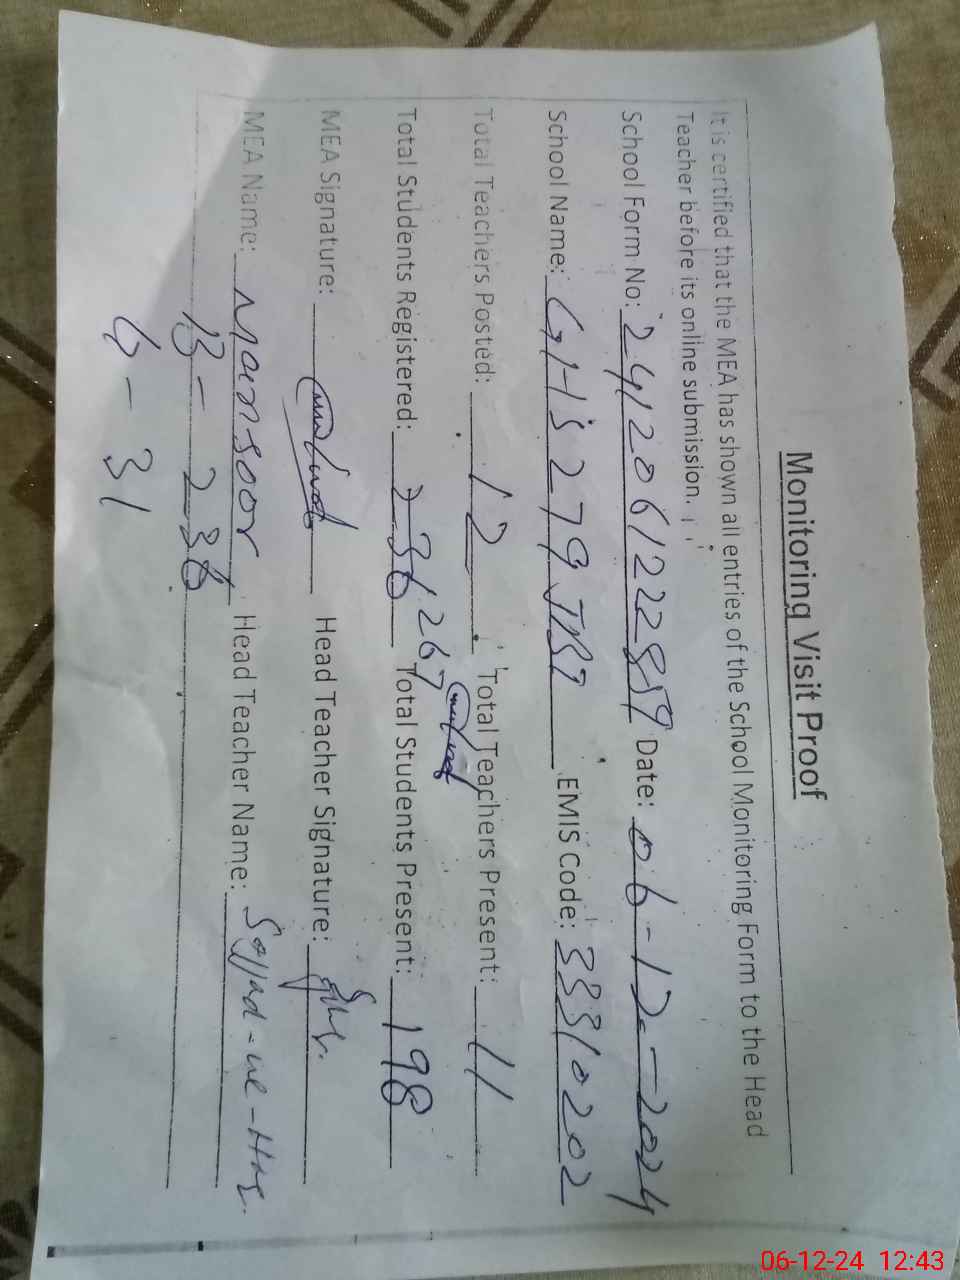 Monitoring Visit Proof
It is certified that the MEA has shown all entries of the School Monitoring Form to the Head
Teacher before its online submission.
School Form No: 2412061222859 Date: 06-12-2024
School Name: GHS 279 JB7 EMIS Code: 33310202
Total Teachers Posted: 12 Total Teachers Present: 11
267
Total Students Registered: 236 Total Students Present: 198
MEA Signature: Head Teacher Signature:
MEA Name: Mansoor Head Teacher Name: Sajjad-ul-Has
B- 236
G- 31
06-12-24 12:43